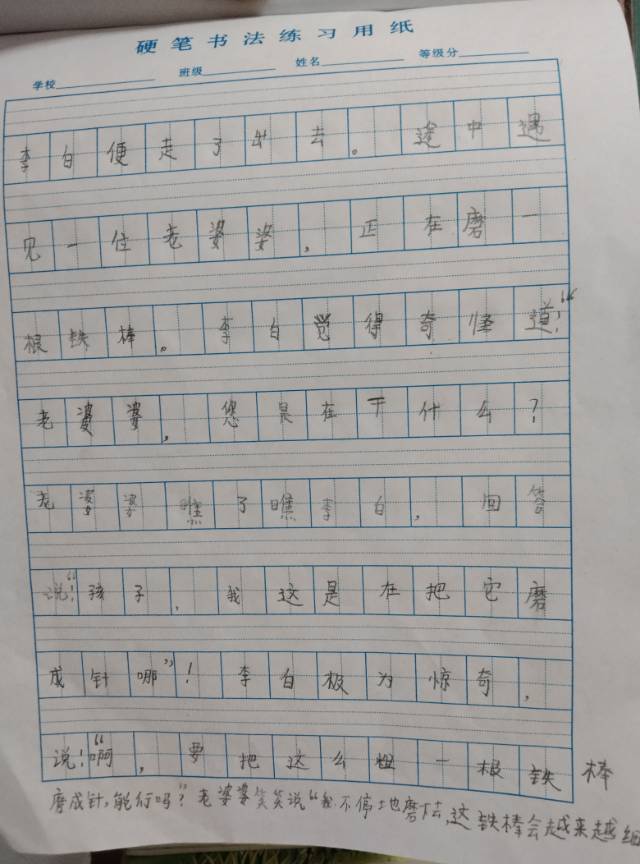 硬笔书法练习用纸
学校 班级 姓名 等级分
李白便走了出去。途中遇
见一位老婆婆，正在磨一
根铁棒。李白觉得奇怪道！“
老婆婆，您是在干什么？
老婆婆瞧了瞧李白，回答
说！“孩子，我这是在把它磨
成针哪”！李白极为惊奇，
说！“啊，要把这么粗一根铁棒
磨成针，能行吗？老婆婆笑笑说“我不停地磨下去，这铁棒会越来越细